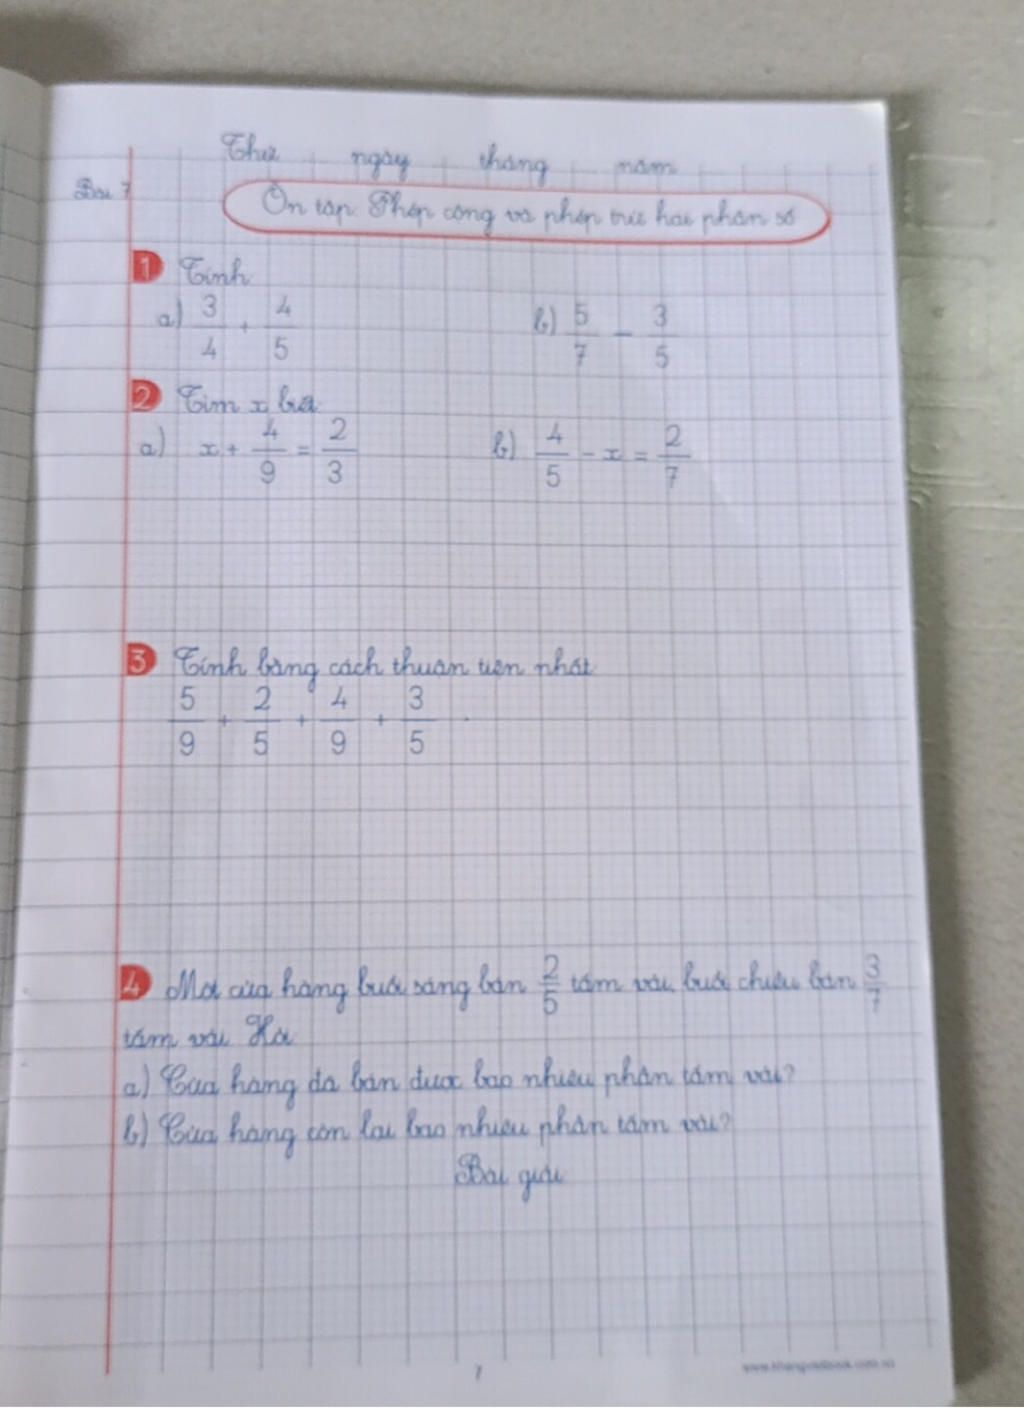 Thứ ngày tháng năm
Bài 7
Ôn tập: Phép cộng và phép trừ hai phân số
1 Tính
a) 3/4 + 4/5 b) 5/7 - 3/5
2 Tìm x biết
a) x + 4/9 = 2/3 b) 4/5 - x = 2/7
3 Tính bằng cách thuận tiện nhất
5/9 + 2/5 + 4/9 + 3/5
4 Một cửa hàng buổi sáng bán 2/5 tấm vải, buổi chiều bán 3/7
tấm vải. Hỏi
a) Cửa hàng đã bán được bao nhiêu phần tấm vải?
b) Cửa hàng còn lại bao nhiêu phần tấm vải?
Bài giải